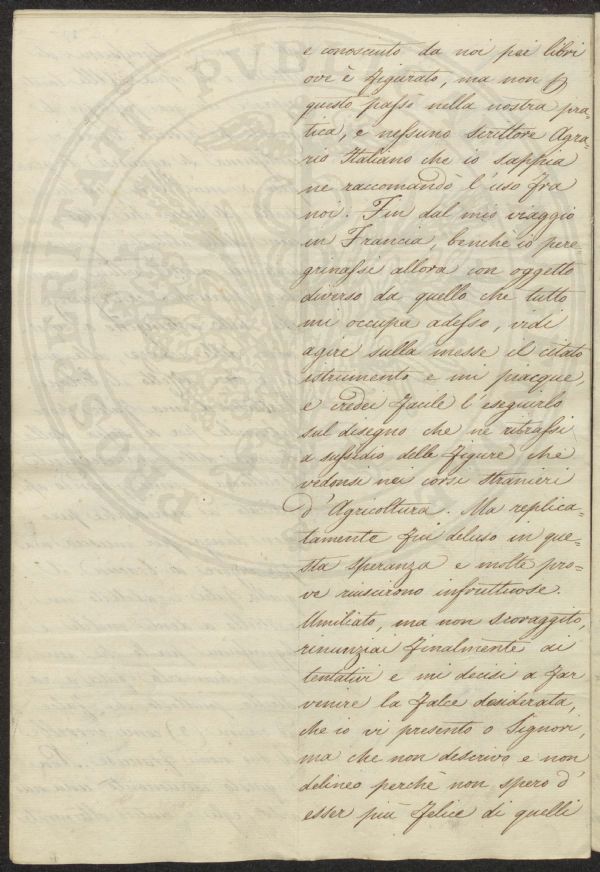 PROSPERITATI PVBLICAE
e conosciuto da noi pei libri
ove è figurato, ma non p
questo passò nella nostra pra=
tica, e nessuno scrittore Agra=
rio Italiano che io sappia
ne raccomandò l'uso fra
noi. Fin dal mio viaggio
in Francia, benchè io pere=
grinassi allora con oggetto
diverso da quello che tutto
mi occupa adesso, vidi
agire sulla messe il citato
istrumento e mi piacque,
e credei facile l'eseguirlo
sul disegno che ne ritrassi
a sussidio delle figure che
vedonsi nei corsi stranieri
d'Agricoltura. Ma replica=
tamente fui deluso in que=
sta speranza e molte pro=
ve riuscirono infruttuose.
Umiliato, ma non scoraggito,
rinunziai finalmente ai
tentativi e mi decisi a far
venire la falce desiderata,
che io vi presento o Signori,
ma che non descrivo e non
delineo perchè non spero d'
esser più felice di quelli